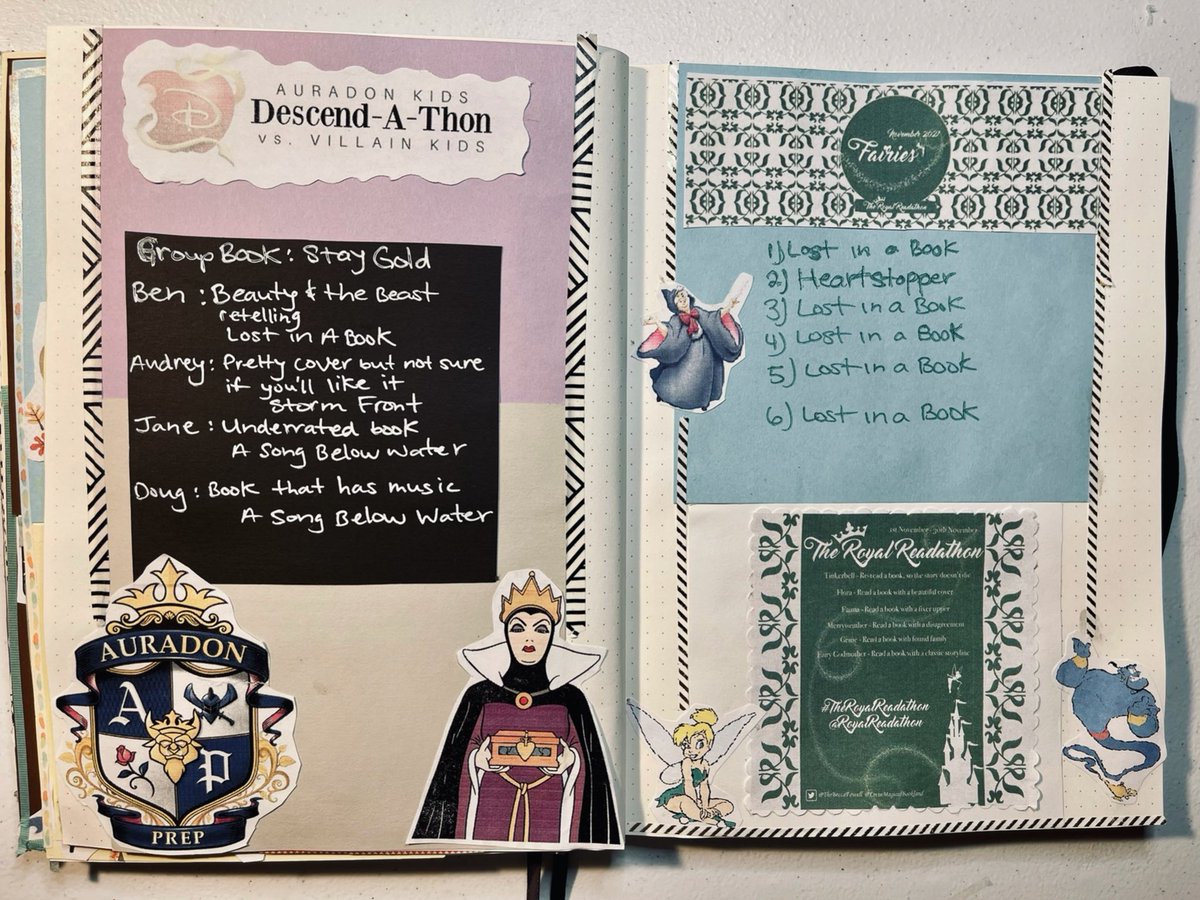 AURADON KIDS
Descend-A-Thon
VS. VILLAIN KIDS
D
Group Book: Stay Gold
Ben : Beauty & the Beast
retelling
Lost in A Book
Audrey: Pretty cover but not sure
if you'll like it
Storm Front
Jane : Underrated book
A Song Below Water
Doug: Book that has music
A Song Below Water
AURADON
A
P
PREP
November 2021
Fairies
The Royal Readathon
1) Lost in a Book
2) Heartstopper
3) Lost in a Book
4) Lost in a Book
5) Lost in a Book
6) Lost in a Book
1st November - 30th November
The Royal Readathon
Tinkerbell - Re-read a book, so the story doesn't die
Flora - Read a book with a beautiful cover
Fauna - Read a book with a fixer upper
Merryweather - Read a book with a disagreement
Genie - Read a book with found family
Fairy Godmother - Read a book with a classic storyline
#TheRoyalReadathon
@RoyalReadathon